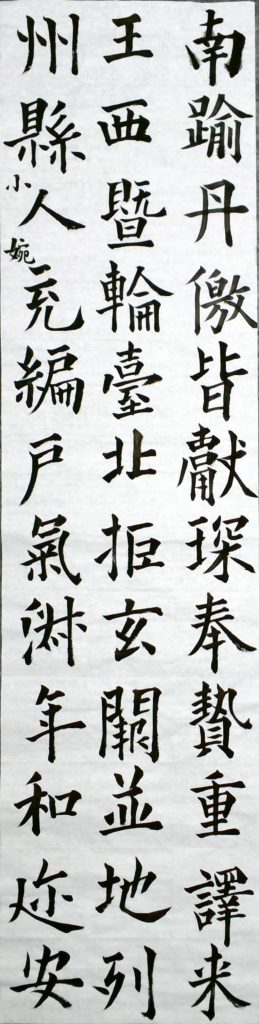 南踰丹儌皆獻琛奉贄重譯来
王西暨輪臺北拒玄闕並地列
州縣人充編戶氣淑年和迩安
小婉